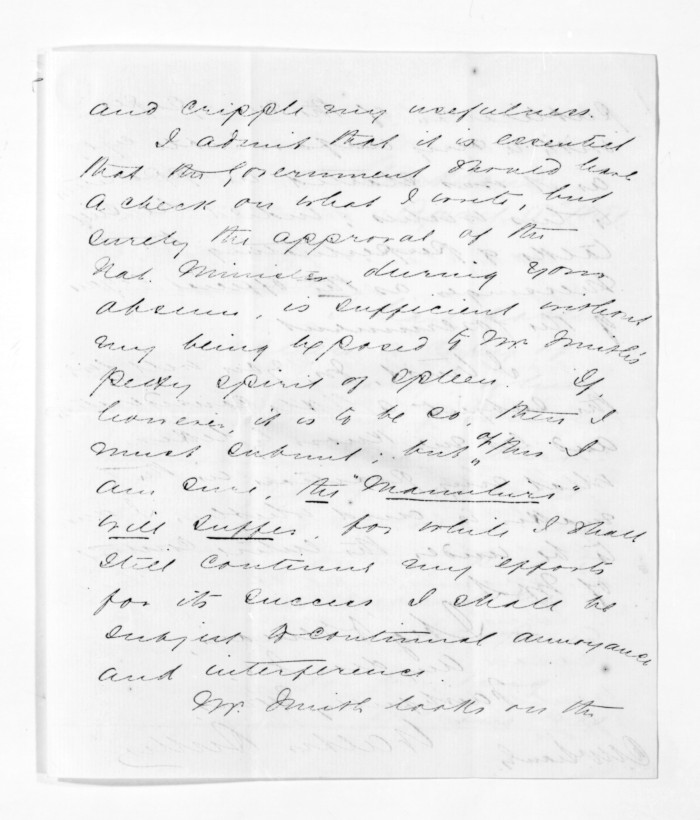 and cripple my usefulness.
I admit that it is essential
that the Government should have
a check on what I write, but
surely the approval of the
Nat. Minister, during your
absence, is sufficient without
my being exposed to Mr. Smith's
petty spirit of spleen. If
however, it is to be so, then I
must submit; but of this I
am sure, the "Manuhuri"
will suffer, for while I shall
still continue my efforts
for its success I shall be
subject to continual annoyance
and interference.
Mr. Smith looks on the